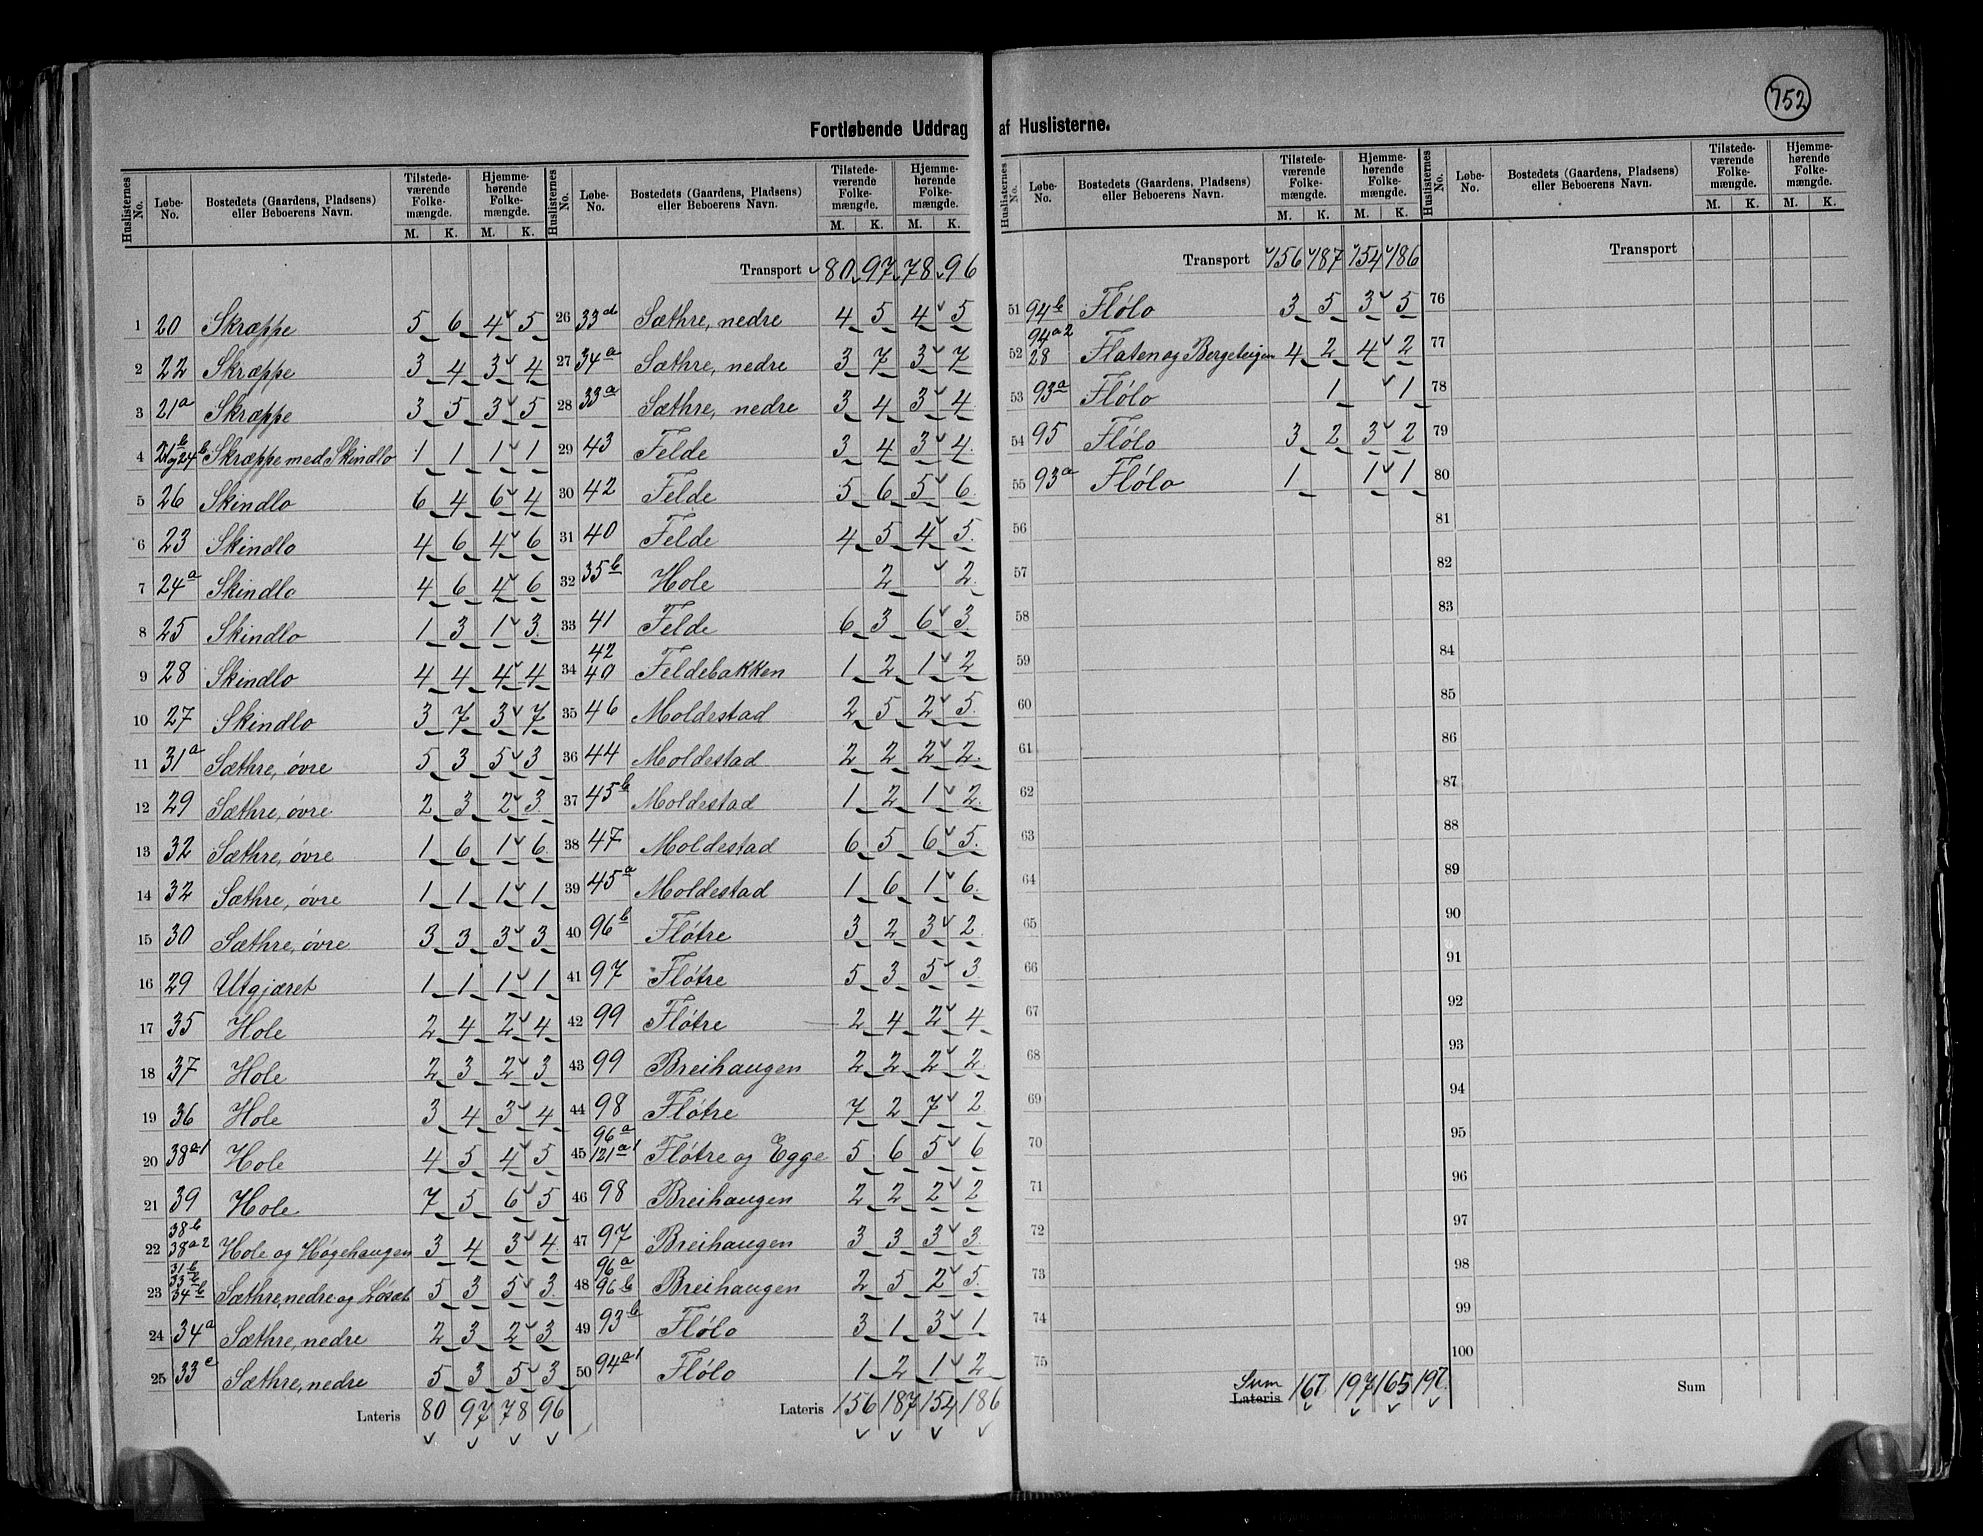 752
Fortløbende Uddrag af Huslisterne.
Huslisternes No. Løbe-No. Bostedets (Gaardens, Pladsens) eller Beboerens Navn. Tilstedeværende Folkemængde. M. K. Hjemmehørende Folkemængde. M. K.
1 20 Skræppe 5 6 4 5
2 22 Skræppe 3 4 3 4
3 21a Skræppe 3 5 3 5
4 21b og 24b Skræppe med Skindlo 1 1 1 1
5 26 Skindlo 6 4 6 4
6 23 Skindlo 4 6 4 6
7 24a Skindlo 4 6 4 6
8 25 Skindlo 1 3 1 3
9 28 Skindlo 4 4 4 4
10 27 Skindlo 3 7 3 7
11 31a Sæthre, óvre 5 3 5 3
12 29 Sæthre, óvre 2 3 2 3
13 32 Sæthre, óvre 1 6 1 6
14 32 Sæthre, óvre 1 1 1 1
15 30 Sæthre, óvre 3 3 3 3
16 29 Utgjæret 1 1 1 1
17 35 Hole 2 4 2 4
18 37 Hole 2 3 2 3
19 36 Hole 3 4 3 4
20 38a1 Hole 4 5 4 5
21 39 Hole 7 5 6 5
22 38b 38a2 Hole og Hógehaugen 3 4 3 4
23 31b 33b 34b Sæthre, nedre og Lósæt 5 3 5 3
24 34a Sæthre, nedre 2 3 2 3
25 33c Sæthre, nedre 5 3 5 3
Lateris 80 97 78 96
Huslisternes No. Løbe-No. Bostedets (Gaardens, Pladsens) eller Beboerens Navn. Tilstedeværende Folkemængde. M. K. Hjemmehørende Folkemængde. M. K.
Transport 80 97 78 96
26 33d Sæthre, nedre 4 5 4 5
27 34a Sæthre, nedre 3 7 3 7
28 33a Sæthre, nedre 3 4 3 4
29 43 Felde 3 4 3 4
30 42 Felde 5 6 5 6
31 40 Felde 4 5 4 5
32 35b Hole 2 2
33 41 Felde 6 3 6 3
34 42 40 Feldebakken 1 2 1 2
35 46 Moldestad 2 5 2 5
36 44 Moldestad 2 2 2 2
37 45b Moldestad 1 2 1 2
38 47 Moldestad 6 5 6 5
39 45a Moldestad 1 6 1 6
40 96b Flótre 3 2 3 2
41 97 Flótre 5 3 5 3
42 99 Flótre 2 4 2 4
43 99 Breihaugen 2 2 2 2
44 98 Flótre 7 2 7 2
45 96a 121a1 Flótre og Egge 5 6 5 6
46 98 Breihaugen 2 2 2 2
47 97 Breihaugen 3 3 3 3
48 96a 96b Breihaugen 2 5 2 5
49 93b Flólo 3 1 3 1
50 94a1 Flólo 1 2 1 2
Lateris 156 187 154 186
Huslisternes No. Løbe-No. Bostedets (Gaardens, Pladsens) eller Beboerens Navn. Tilstedeværende Folkemængde. M. K. Hjemmehørende Folkemængde. M. K.
Transport 156 187 154 186
51 94b Flólo 3 5 3 5
52 94a2 28 Flaten og Bergeteigen 4 2 4 2
53 93a Flólo 1 1
54 95 Flólo 3 2 3 2
55 93a Flólo 1 1 1
56
57
58
59
60
61
62
63
64
65
66
67
68
69
70
71
72
73
74
75
Sum Lateris 167 197 165 197
Huslisternes No. Løbe-No. Bostedets (Gaardens, Pladsens) eller Beboerens Navn. Tilstedeværende Folkemængde. M. K. Hjemmehørende Folkemængde. M. K.
Transport
76
77
78
79
80
81
82
83
84
85
86
87
88
89
90
91
92
93
94
95
96
97
98
99
100
Sum